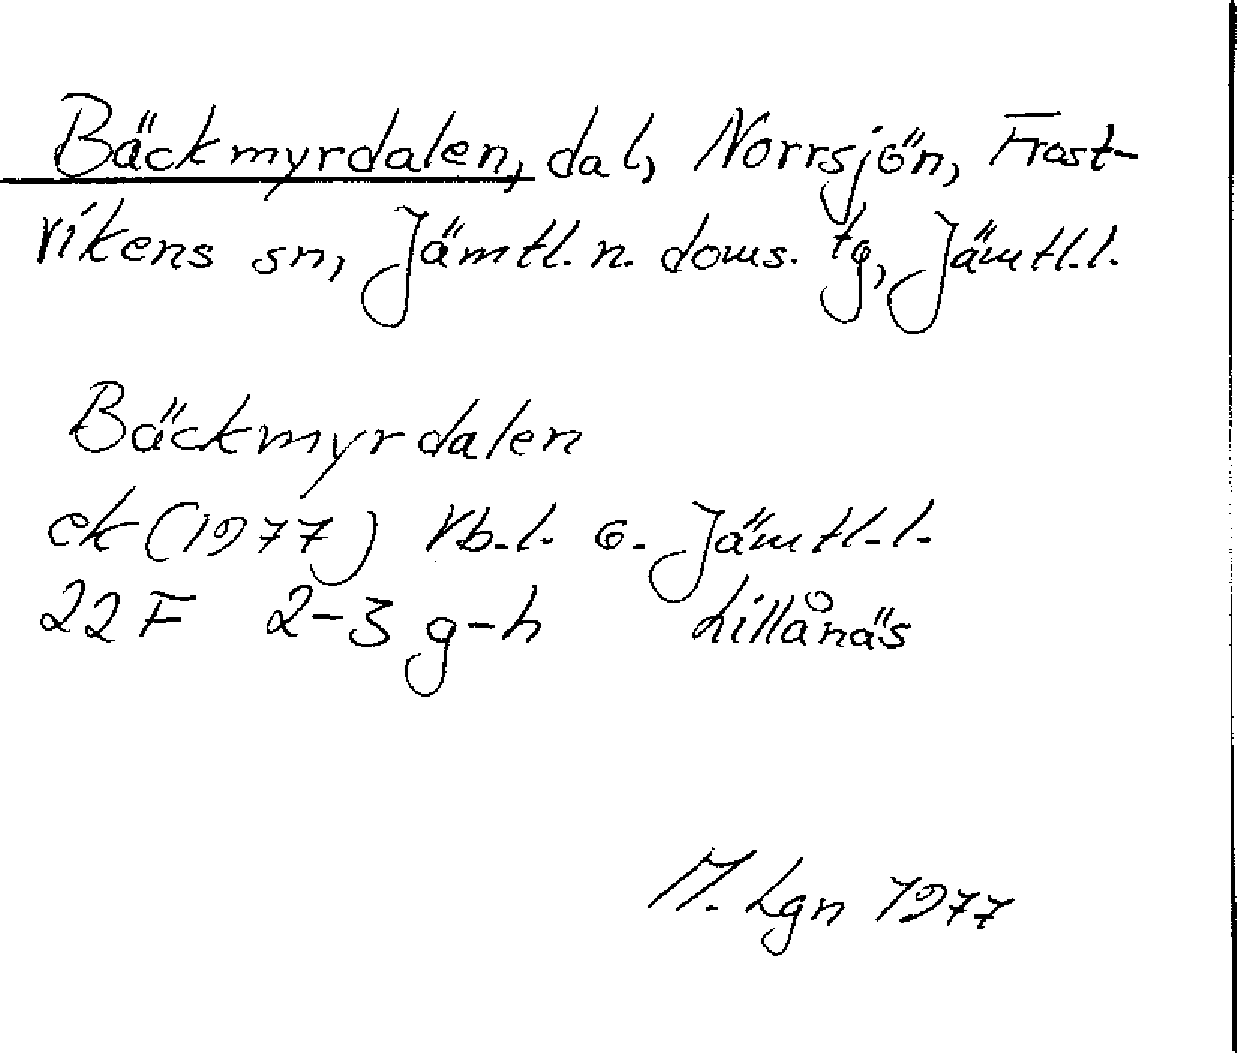 Bäckmyrdalen, dal, Norrsjön, Frost-
vikens sn, Jämtl. n. doms. tg, Jämtl.l.
Bäckmyrdalen
ek (1977) Vb.l. o. Jämtl.l.
22 F 2-3 g-h Lillånäs
M. Lgn 1977